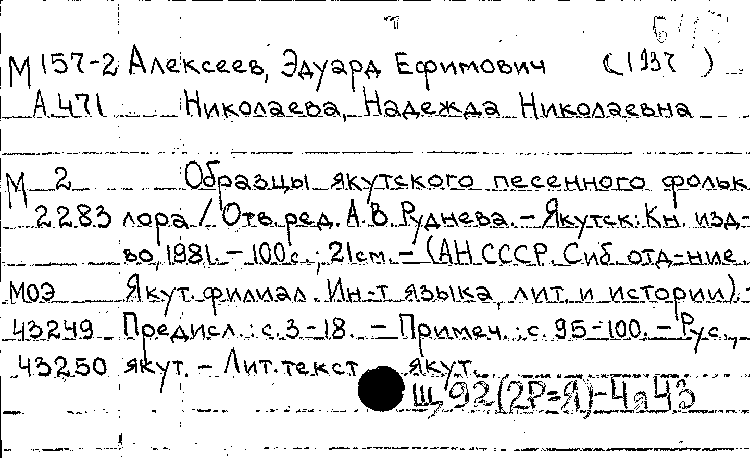 М 157-2 Алексеев, Эдуард Ефимович (1937 )
А 471 Николаева, Надежда Николаевна
М 2 Образцы якутского песенного фольк
2283 лора / Отв. ред. А.В. Руднева. - Якутск: Кн. изд-
во, 1981. - 100 с.; 21 см. - (АН СССР. Сиб. отд-ние.
МОЭ Якут. филиал. Ин-т языка, лит. и истории). -
43249 Предисл.: с. 3-18. - Примеч.: с. 95-100. - Рус.,
43250 якут. - Лит. текст якут.
Щ92(2Р=Я)-4я43